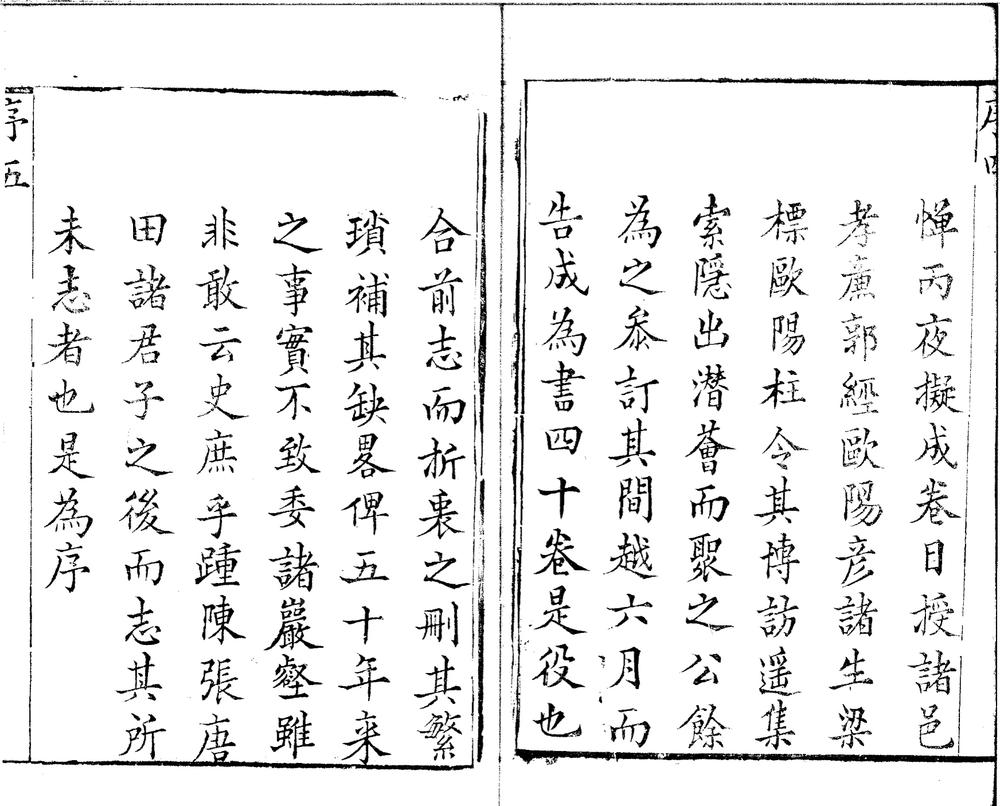 序四
憚丙夜擬成卷日授諸邑
孝亷郭經歐陽彦諸生梁
標歐陽柱令其博訪遥集
索隱出潜薈而聚之公餘
為之叅訂其間越六月而
告成為書四十卷是役也
合前志而折衷之刪其繁
瑣補其缺畧俾五十年来
之事實不致委諸巖壑雖
非敢云史庶乎踵陳張唐
田諸君子之後而志其所
未志者也是為序
序五